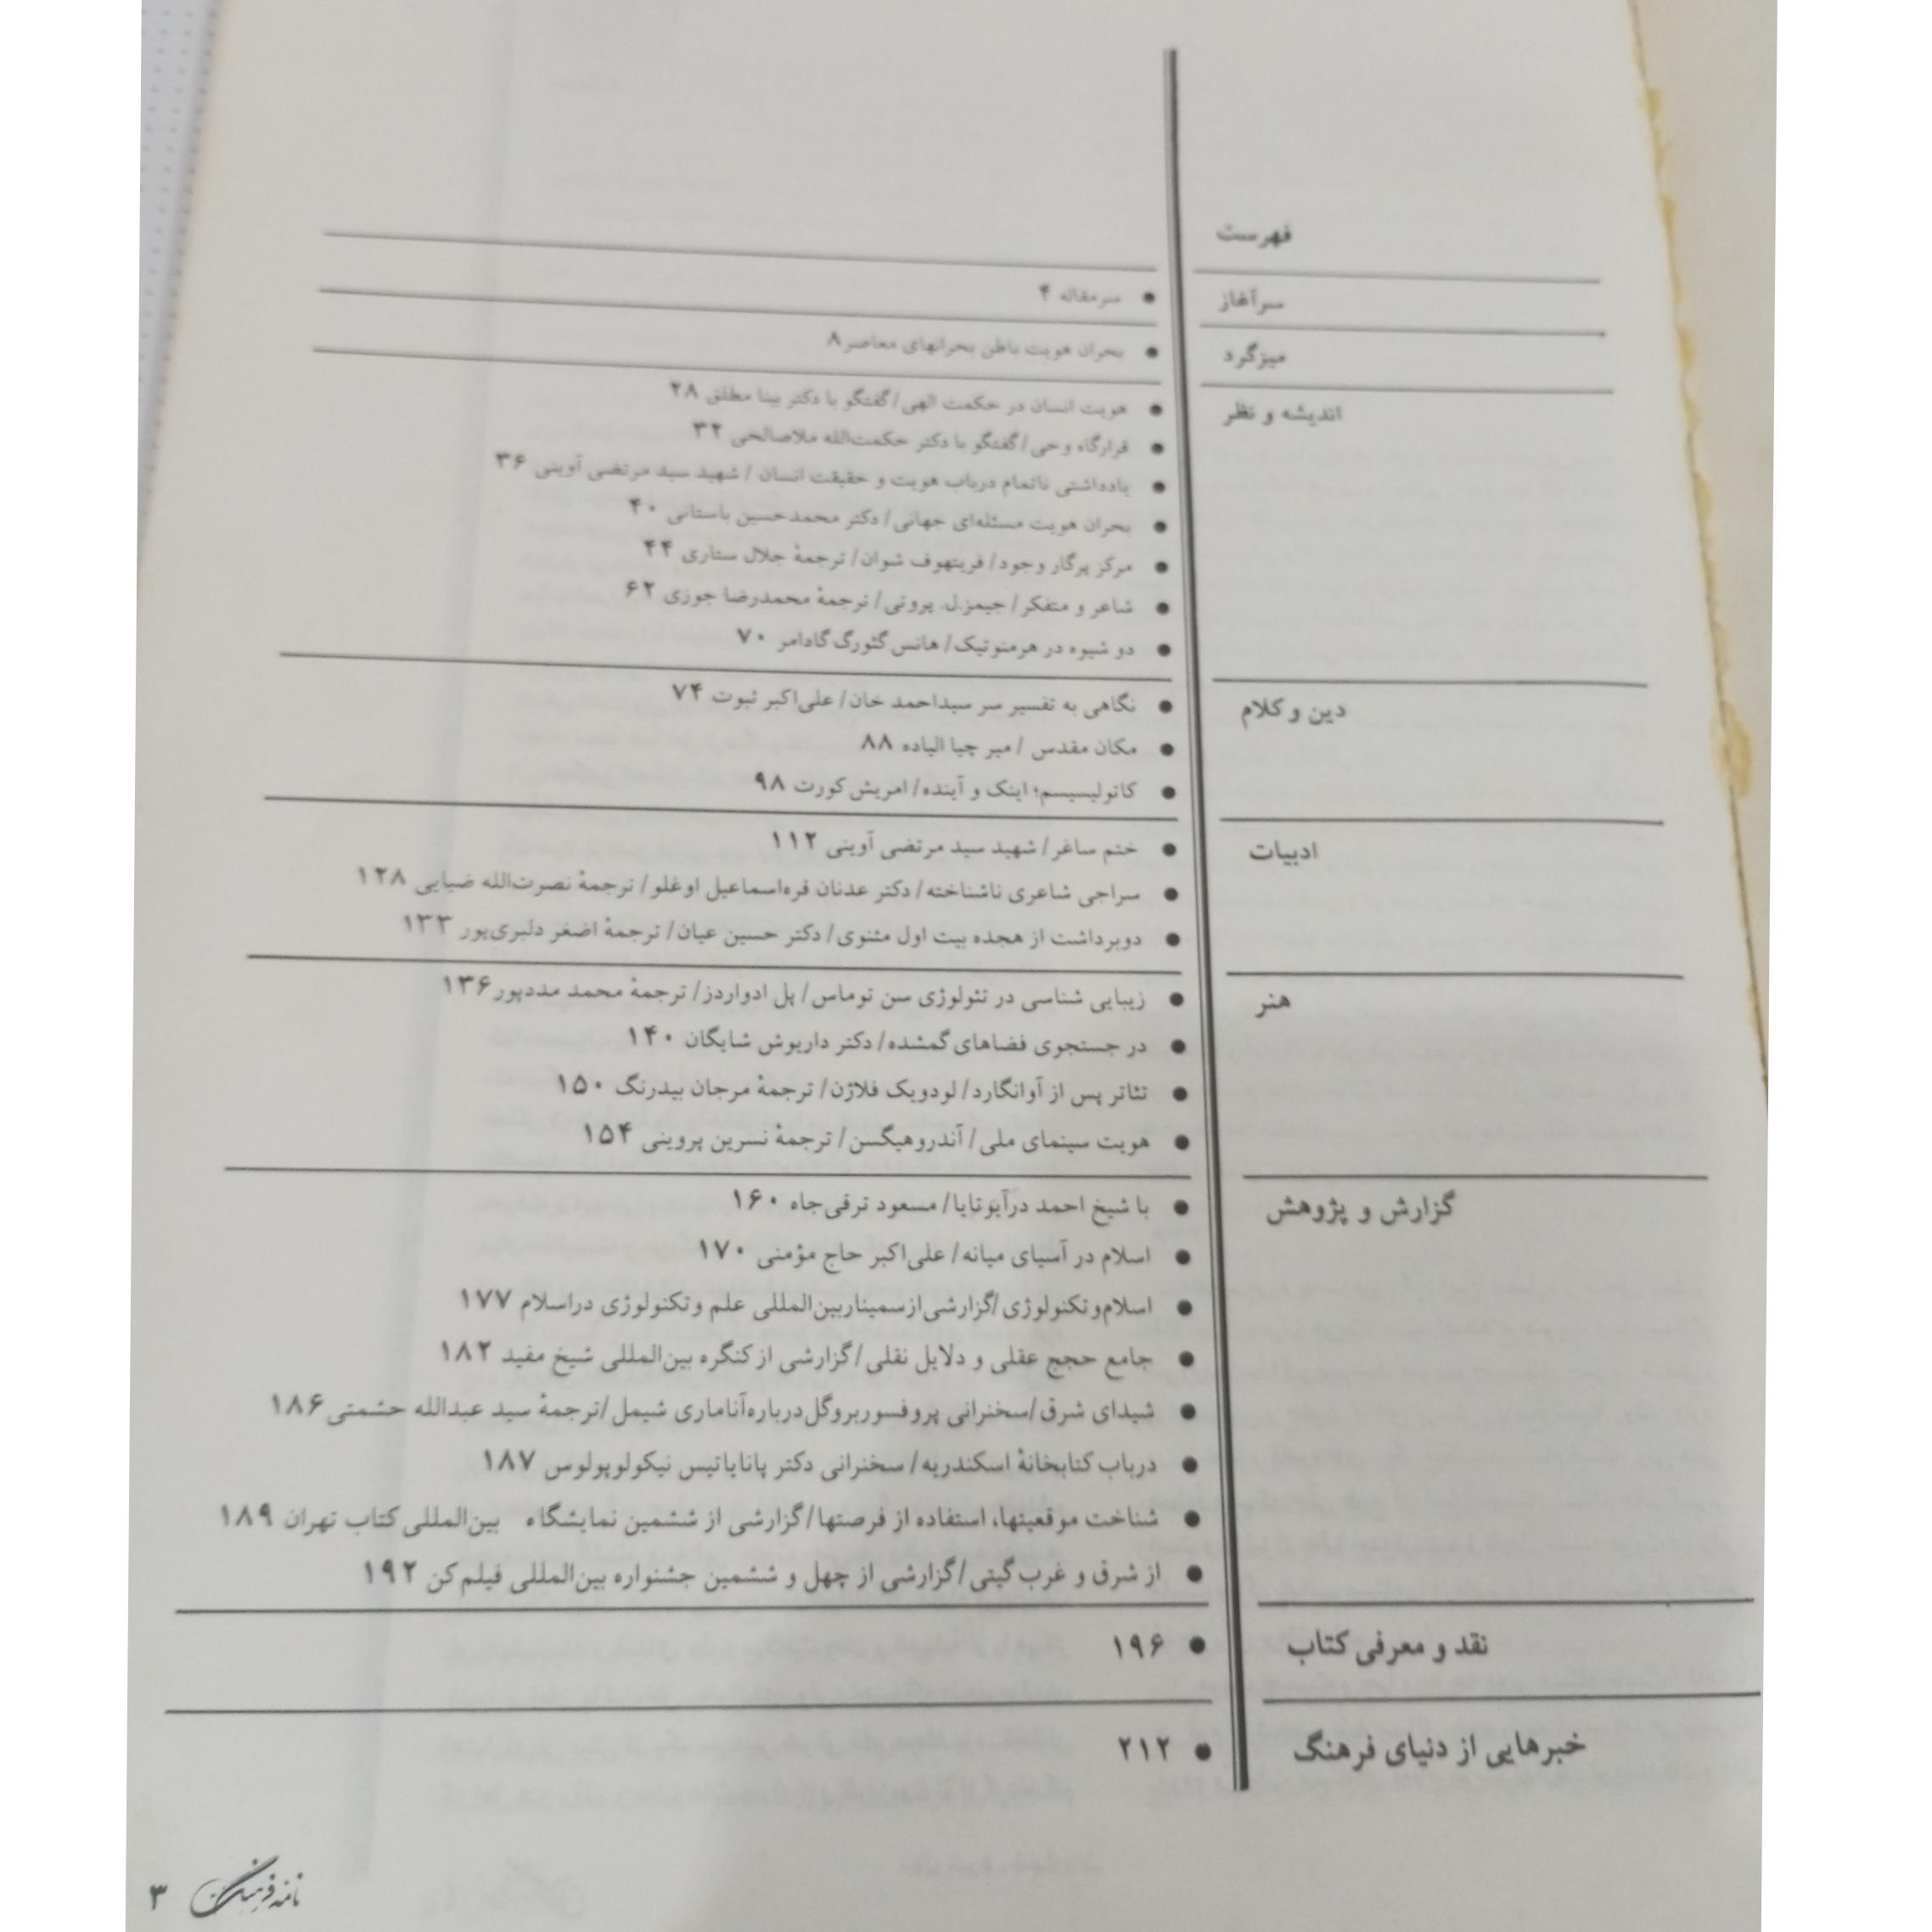 فهرست
سرآغاز
سرمقاله ۴
میزگرد
بحران هویت باطن بحرانهای معاصر۸
اندیشه و نظر
هویت انسان در حکمت الهی/گفتگو با دکتر بینا مطلق ۲۸
قرارگاه وحی/گفتگو با دکتر حکمت‌الله ملاصالحی ۳۲
یادداشتی ناتمام درباب هویت و حقیقت انسان / شهید سید مرتضی آوینی ۳۶
بحران هویت مسئله‌ای جهانی/ دکتر محمدحسین باستانی ۴۰
مرکز پرگار وجود/ فریتهوف شوان/ ترجمهٔ جلال ستاری ۴۴
شاعر و متفکر/ جیمز.ل. پروتی/ ترجمهٔ محمدرضا جوزی ۶۲
دو شیوه در هرمنوتیک/ هانس گئورگ گادامر ۷۰
دین و کلام
نگاهی به تفسیر سر سیداحمد خان/ علی‌اکبر ثبوت ۷۴
مکان مقدس / میر چیا الیاده ۸۸
کاتولیسیسم؛ اینک و آینده/ امریش کورت ۹۸
ادبیات
ختم ساغر/ شهید سید مرتضی آوینی ۱۱۲
سراجی شاعری ناشناخته/ دکتر عدنان قره‌اسماعیل اوغلو/ ترجمهٔ نصرت‌الله ضیایی ۱۲۸
دوبرداشت از هجده بیت اول مثنوی/ دکتر حسین عیان/ ترجمهٔ اضغر دلبری‌پور ۱۳۳
هنر
زیبایی شناسی در تئولوژی سن توماس/ پل ادواردز/ ترجمهٔ محمد مددپور۱۳۶
در جستجوی فضاهای گمشده/ دکتر داریوش شایگان ۱۴۰
تئاتر پس از آوانگارد/ لودویک فلاژن/ ترجمهٔ مرجان بیدرنگ ۱۵۰
هویت سینمای ملی/ آندروهیگسن/ ترجمهٔ نسرین پروینی ۱۵۴
گزارش و پژوهش
با شیخ احمد درآیوتایا/ مسعود ترقی‌جاه ۱۶۰
اسلام در آسیای میانه/ علی‌اکبر حاج مؤمنی ۱۷۰
اسلام‌وتکنولوژی/گزارشی‌ازسمیناربین‌المللی علم وتکنولوژی دراسلام ۱۷۷
جامع حجج عقلی و دلایل نقلی/گزارشی از کنگره بین‌المللی شیخ مفید ۱۸۲
شیدای شرق/سخنرانی پروفسوربروگل‌درباره‌آناماری شیمل/ترجمهٔ سید عبدالله حشمتی۱۸۶
درباب کتابخانهٔ اسکندریه/ سخنرانی دکتر پانایاتیس نیکولوپولوس ۱۸۷
شناخت موقعیتها، استفاده از فرصتها/گزارشی از ششمین نمایشگاه بین‌المللی کتاب تهران ۱۸۹
از شرق و غرب گیتی/گزارشی از چهل و ششمین جشنواره بین‌المللی فیلم کن ۱۹۲
نقد و معرفی کتاب
۱۹۶
خبرهایی از دنیای فرهنگ
۲۱۲
نامه فرهنگ ۳